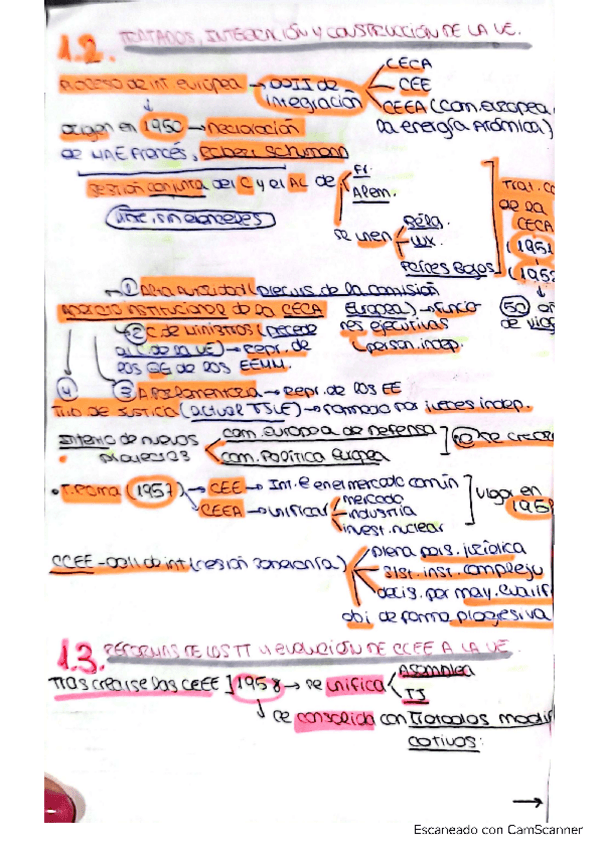 1.2. TRATADOS, INTEGRACIÓN Y CONSTRUCCIÓN DE LA UE.
Proceso de int. europea → OOII de integración
CECA
CEE
CEEA (Com. europea
la energía Atómica)
origen en 1950 → declaración
de MAE francés, Robert Schumann
Gestión conjunta del C y el AC de
Fr.
Alem.
se unen
Bélg.
Lux.
Países Bajos
Trat. C
de la
CECA
(1951
(1952
50 añ
de vig
1 Alta Autoridad (precus. de la comisión
Europea) → funcio
nes ejecutivas
person. indep.
Aparato institucional de la CECA
2 C de Ministros (precede
al C de la UE) → Repr. de
los GG de los EEMM.
3 A. Parlamentaria → Repr. de los EE
4
Trib de Justicia (actual TJUE) → formado por jueces indep.
Intento de nuevos
proyectos
com. europea de defensa
com. Política Europea
no se crearo
• T. Roma (1957)
CEE → Int. en el mercado común
CEEA → unificar
mercado
industria
invest. nuclear
vigor en
1958
CCEE - OOII de int (cesión soberanía)
plena pers. jurídica
sist. inst. complejo
decis. por may. cualif
obj de forma progresiva
1.3. REFORMAS DE LOS TT Y EVOLUCIÓN DE CCEE A LA UE.
Tras crearse las CCEE ] 1958 → se unifica
Asamblea
TJ
se consolida con Tratados modif
cativos:
→
Escaneado con CamScanner